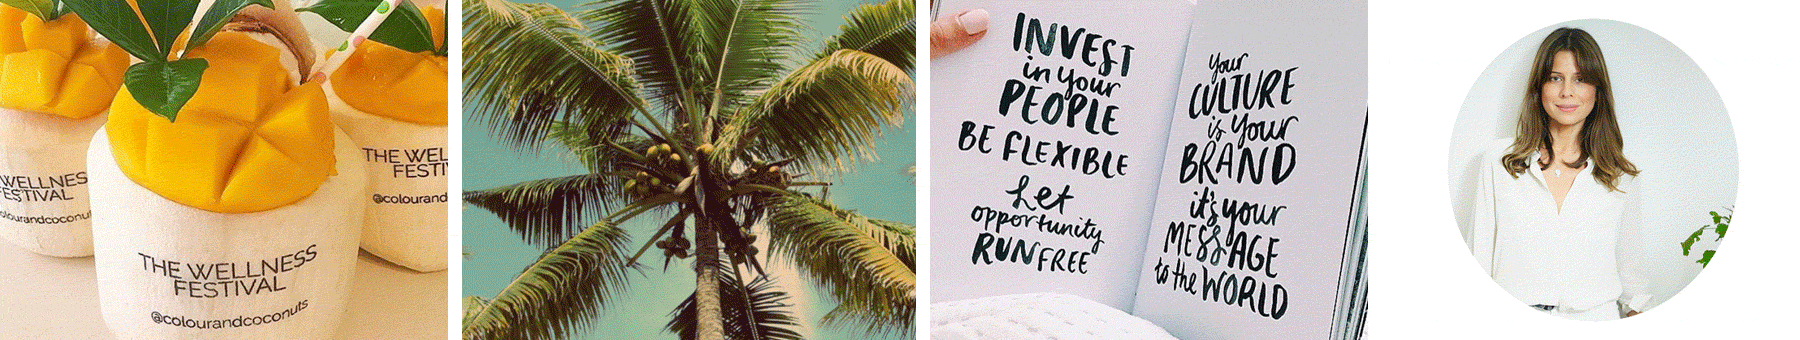 THE WELLNESS
FESTIVAL
@colourandcoconuts
THE WEL
FESTI
@colourand
INVEST
in your
PEOPLE
BE FLEXIBLE
Let
opportunity
RUN FREE
your
CULTURE
is your
BRAND
it's your
MESSAGE
to the WORLD